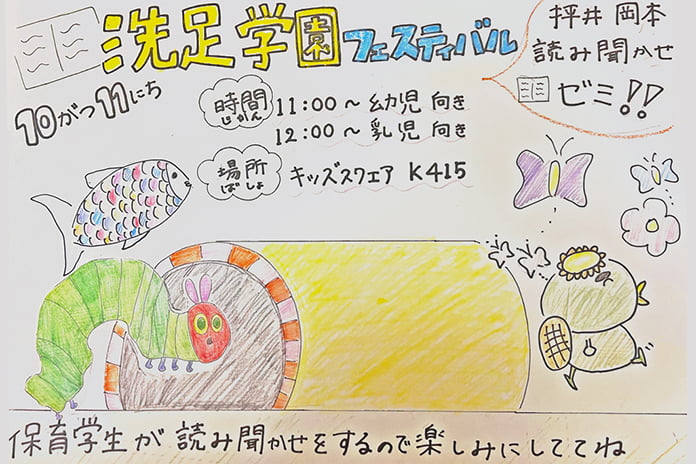 洗足学園フェスティバル
坪井 岡本
読み聞かせ
ゼミ!!
10がつ11にち
時間 11:00～幼児 向き
じかん
12:00～乳児 向き
場所 キッズスクエア K415
ばしょ
保育学生が 読み聞かせをするので楽しみにしててね